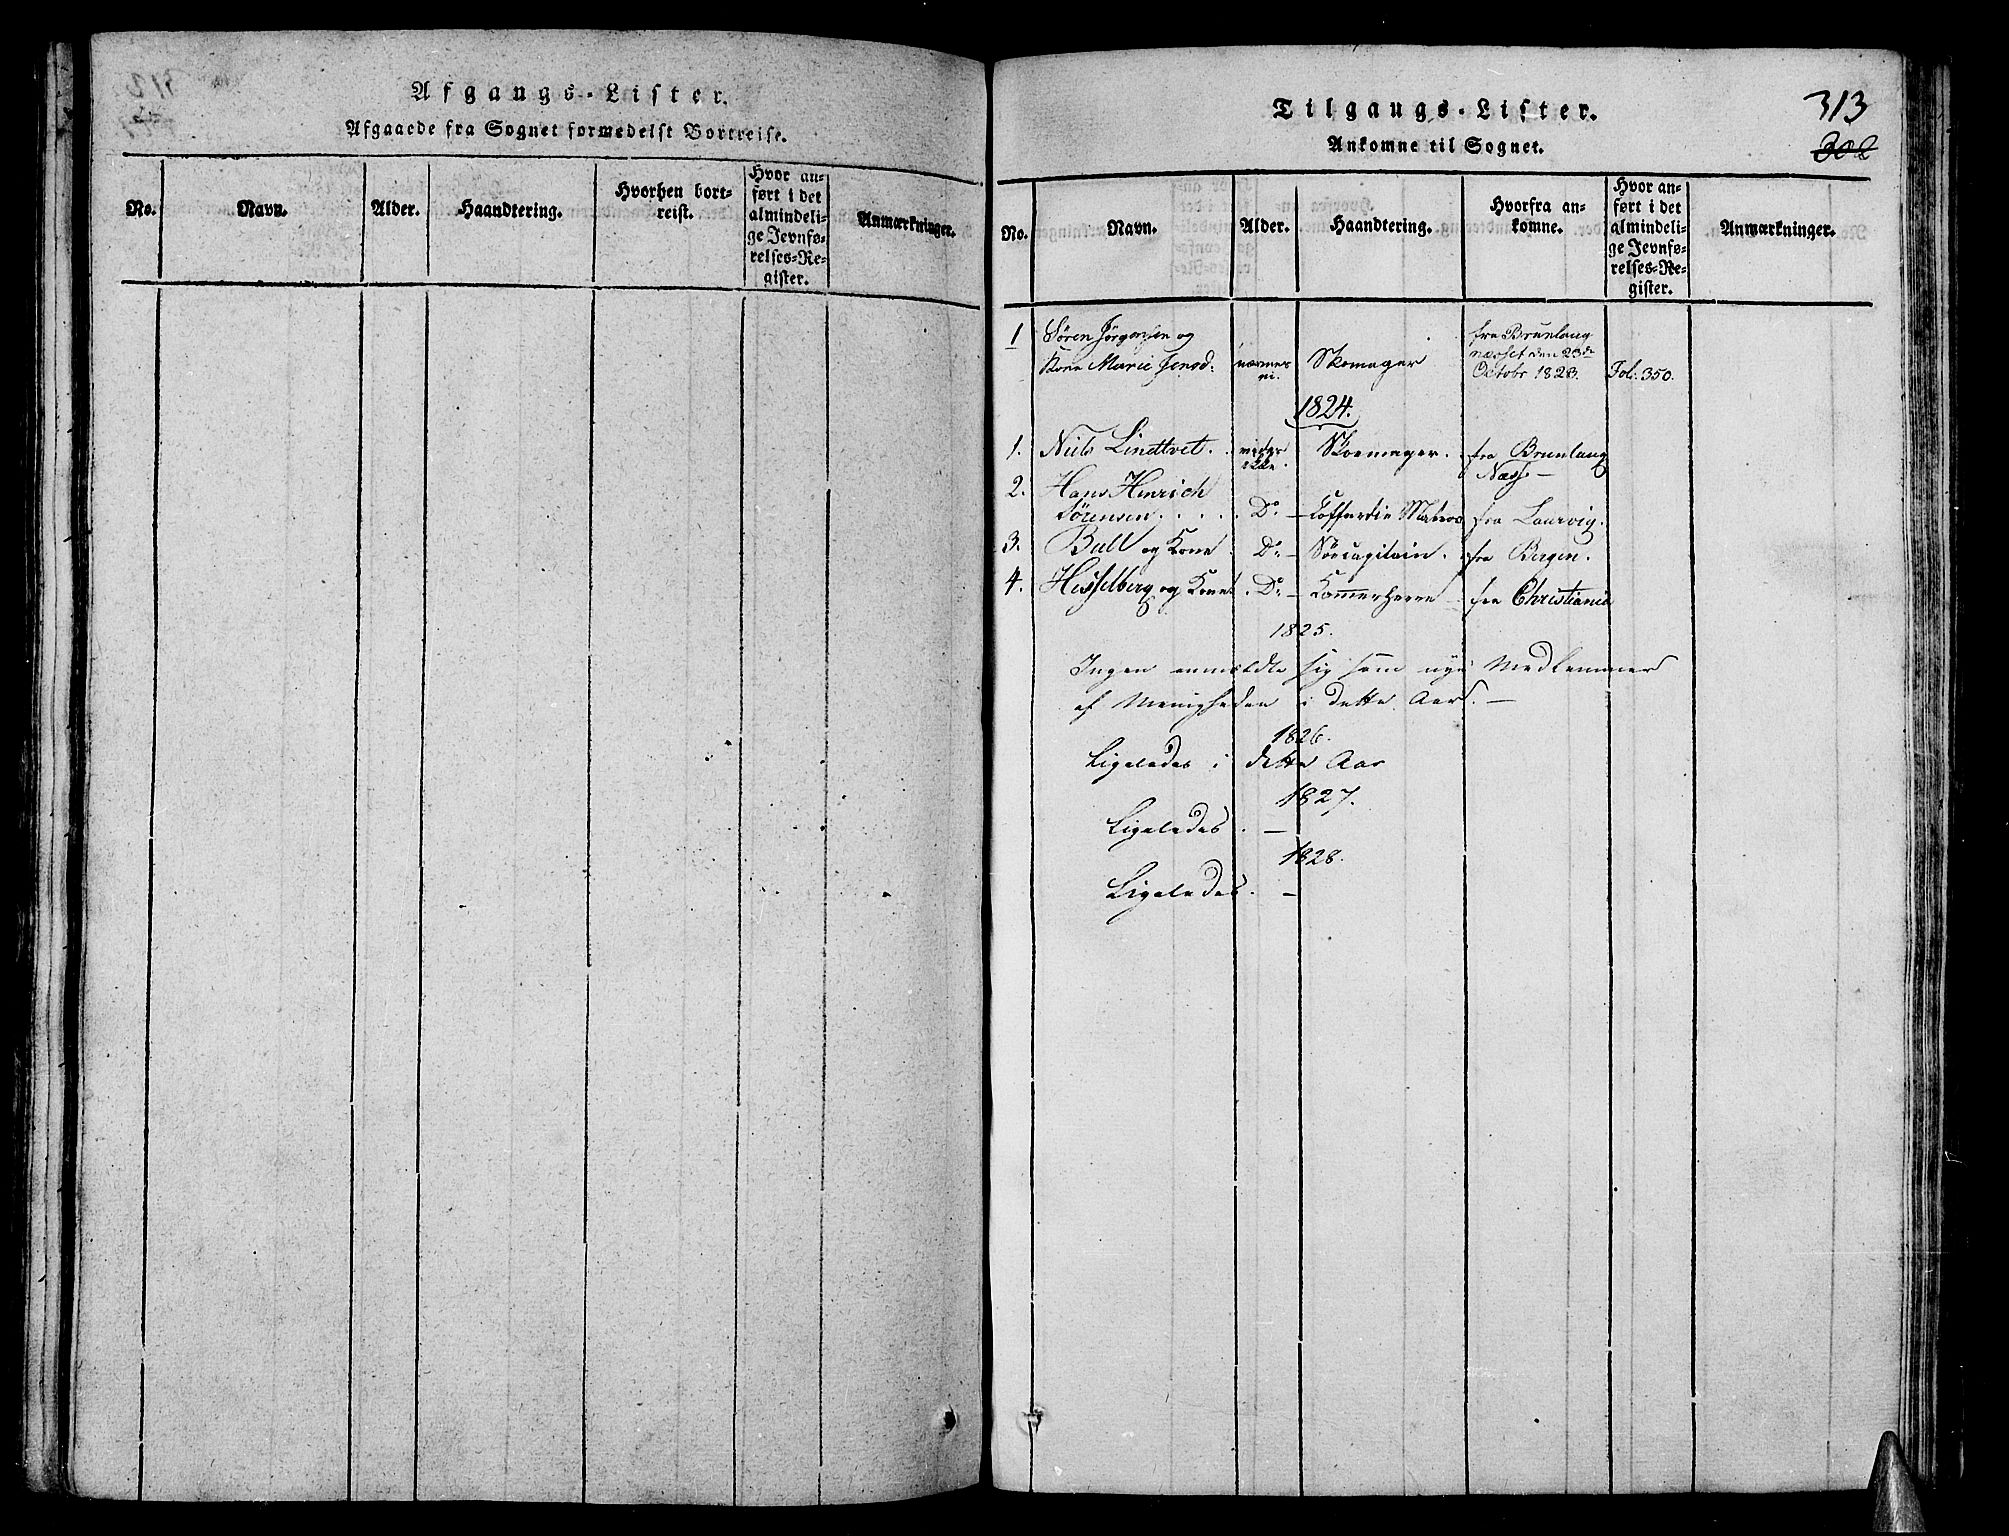 Afgangs-Lister.
Afgaaede fra Sognet formedelst Bortreise.
No.
Navn.
Alder.
Haandtering.
Hvorhen bort-
reist.
Hvor an-
ført i det
almindeli-
ge Jevnfø-
relses-Re-
gister.
Anmærkninger.
Tilgangs-Lister.
Ankomne til Sognet.
313
302
No.
Navn.
Alder.
Haandtering.
Hvorfra an-
komne.
Hvor an-
ført i det
almindeli-
ge Jevnfø-
relses-Re-
gister.
Anmærkninger.
1 Søren Jørgensen og fra Brunlaug
næsset den 23de
Kone Marie Jensd: Skomager Octobr 1823. Fol: 350.
1824.
1. Niels Lindtvet. Skoemager. fra Brunlaug
ikke. Næss
2. Hans Henrich
Sørensen Do Coffardie Matros fra Laurvig.
3. Bull og Kone Do Søecapitain. fra Bergen.
4. Hesselberg og Kone Do Kammerherre fra Christiania
1825.
Ingen anmeldte sig som nye Medlemmer
af Menigheden i dette Aar.
1826.
Ligeledes i dette Aar
1827.
Ligeledes.
1828.
Ligeledes.